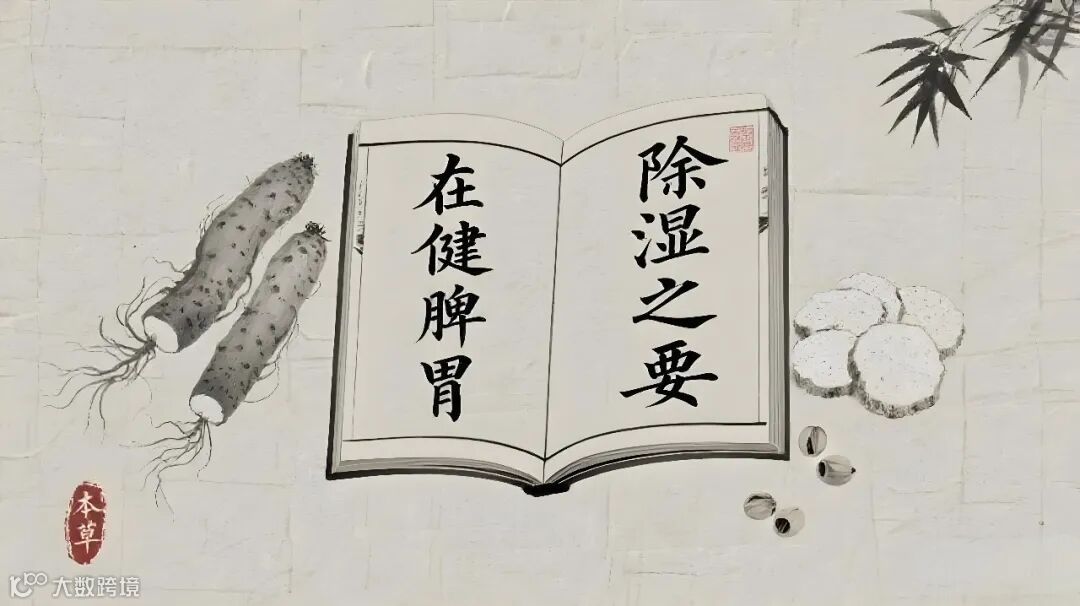 除湿之要
在健脾胃
本草
大数跨境